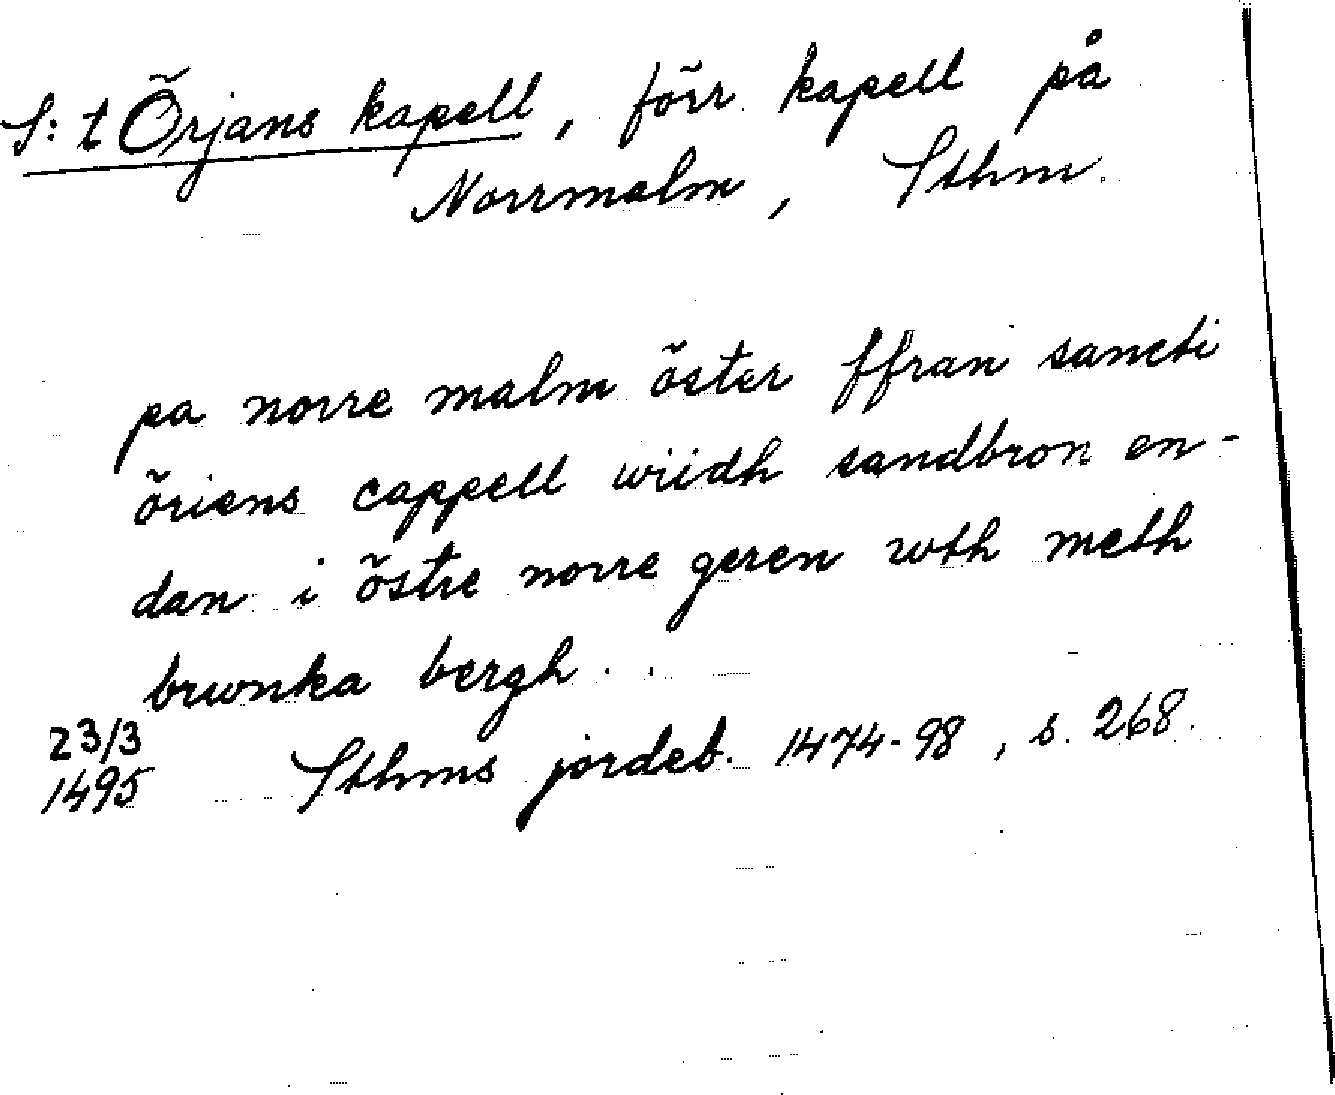 S:t Örjans kapell, förr kapell på
Norrmalm, Sthm.
pa norre malm öster ffran sancti
öriens cappell wiidh sandbron en-
dan i östre norre geren wth meth
brwnka bergh . .
23/3
1495 Sthms jordeb. 1474-98, s. 268.